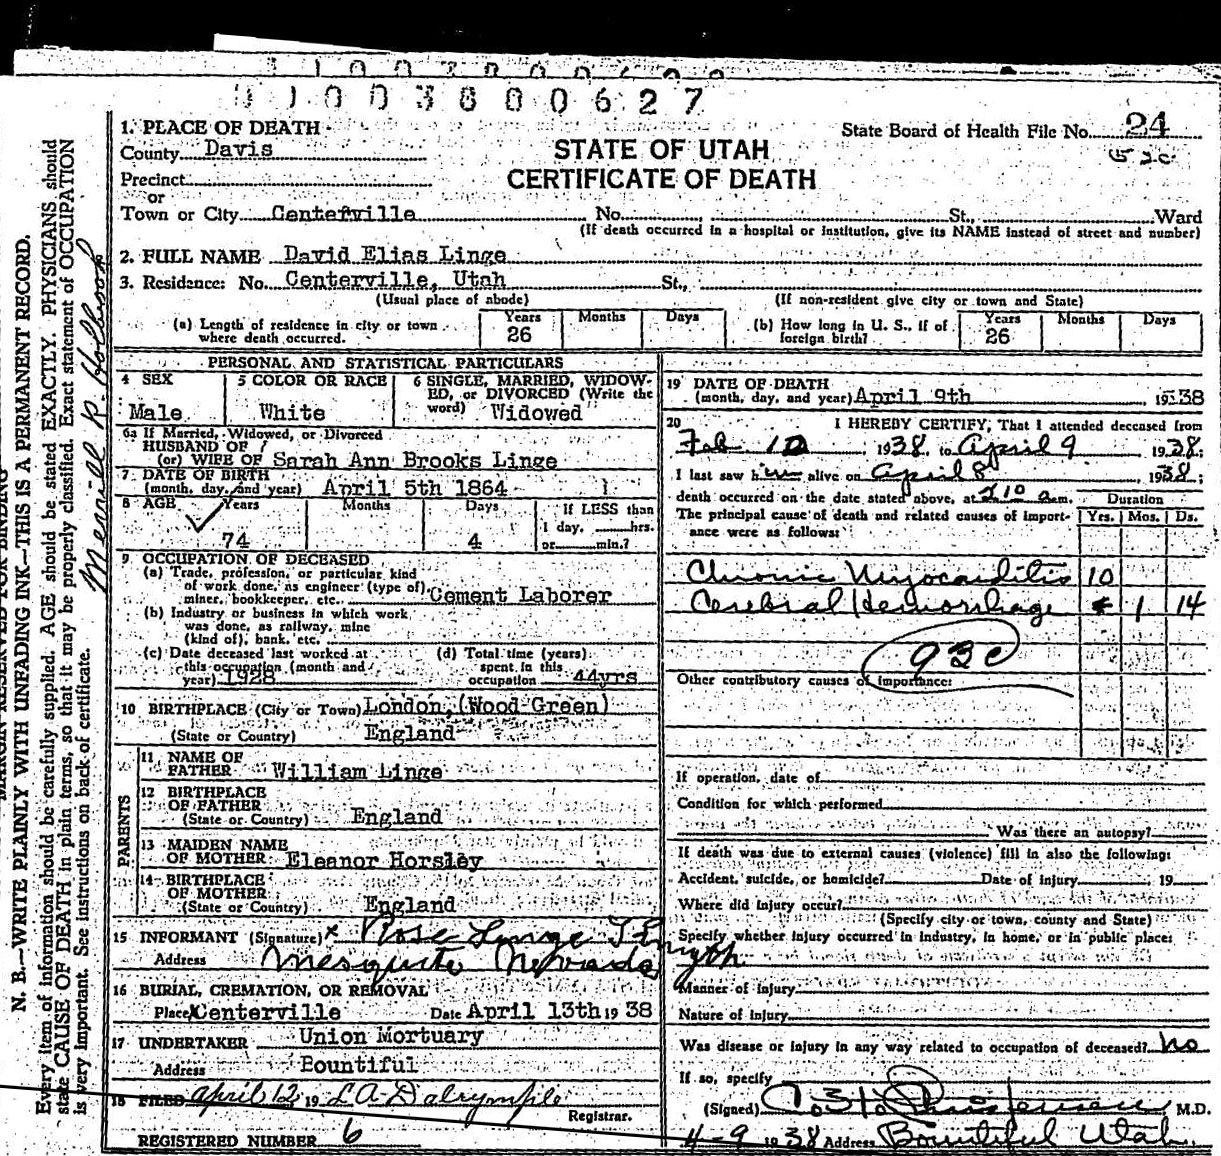 11003800627
1. PLACE OF DEATH
County Davis
Precinct
or
Town or City Centerville No. St., Ward
(If death occurred in a hospital or institution, give its NAME instead of street and number)
State Board of Health File No. 24
STATE OF UTAH
CERTIFICATE OF DEATH
2. FULL NAME David Elias Linge
3. Residence: No. Centerville, Utah St.,
(Usual place of abode) (If non-resident give city or town and State)
(a) Length of residence in city or town where death occurred. Years 26 Months Days
(b) How long in U. S., if of foreign birth? Years 26 Months Days
PERSONAL AND STATISTICAL PARTICULARS
4 SEX Male
5 COLOR OR RACE White
6 SINGLE, MARRIED, WIDOW-
ED, or DIVORCED (Write the
word) Widowed
6a If Married, Widowed, or Divorced
HUSBAND OF
(or) WIFE OF Sarah Ann Brooks Linge
7 DATE OF BIRTH
(month, day, and year) April 5th 1864
8 AGE Years Months Days If LESS than
1 day, hrs.
74 4 or min.?
9 OCCUPATION OF DECEASED
(a) Trade, profession, or particular kind
of work done, as engineer (type of)
miner, bookkeeper, etc. Cement Laborer
(b) Industry or business in which work
was done, as railway, mine
(kind of), bank, etc.
(c) Date deceased last worked at
this occupation (month and
year) 1928
(d) Total time (years)
spent in this
occupation 44yrs
10 BIRTHPLACE (City or Town) London (Wood Green)
(State or Country) England
PARENTS
11 NAME OF
FATHER William Linge
12 BIRTHPLACE
OF FATHER
(State or Country) England
13 MAIDEN NAME
OF MOTHER Eleanor Horsley
14 BIRTHPLACE
OF MOTHER
(State or Country) England
15 INFORMANT (Signature) x Rose Linge
Address Mesquite Nevada
16 BURIAL, CREMATION, OR REMOVAL
Place Centerville Date April 13th 19 38
17 UNDERTAKER Union Mortuary
Address Bountiful
18 FILED April 12, 19 L A Dalrymple
Registrar.
REGISTERED NUMBER 6
19 DATE OF DEATH
(month, day, and year) April 9th , 1938
20 I HEREBY CERTIFY, That I attended deceased from
Feb 10, 1938, to April 9, 1938;
I last saw him alive on April 8, 1938;
death occurred on the date stated above, at 210 a.m. Duration
The principal cause of death and related causes of import-
ance were as follows: Yrs. Mos. Ds.
Chronic Myocarditis 10
Cerebral Hemorrhage 1 14
93c
Other contributory causes of importance:
If operation, date of
Condition for which performed
Was there an autopsy?
If death was due to external causes (violence) fill in also the following:
Accident, suicide, or homicide? Date of injury 19
Where did injury occur?
(Specify city or town, county and State)
Specify whether injury occurred in industry, in home, or in public place:
Manner of injury
Nature of injury
Was disease or injury in any way related to occupation of deceased? No
If so, specify
(Signed) M.D.
4-9 1938 Address Bountiful Utah
N. B.—WRITE PLAINLY WITH UNFADING INK—THIS IS A PERMANENT RECORD.
Every item of information should be carefully supplied. AGE should be stated EXACTLY. PHYSICIANS should
state CAUSE OF DEATH in plain terms, so that it may be properly classified. Exact statement of OCCUPATION
is very important. See instructions on back of certificate.
Merrill R. Holbrook